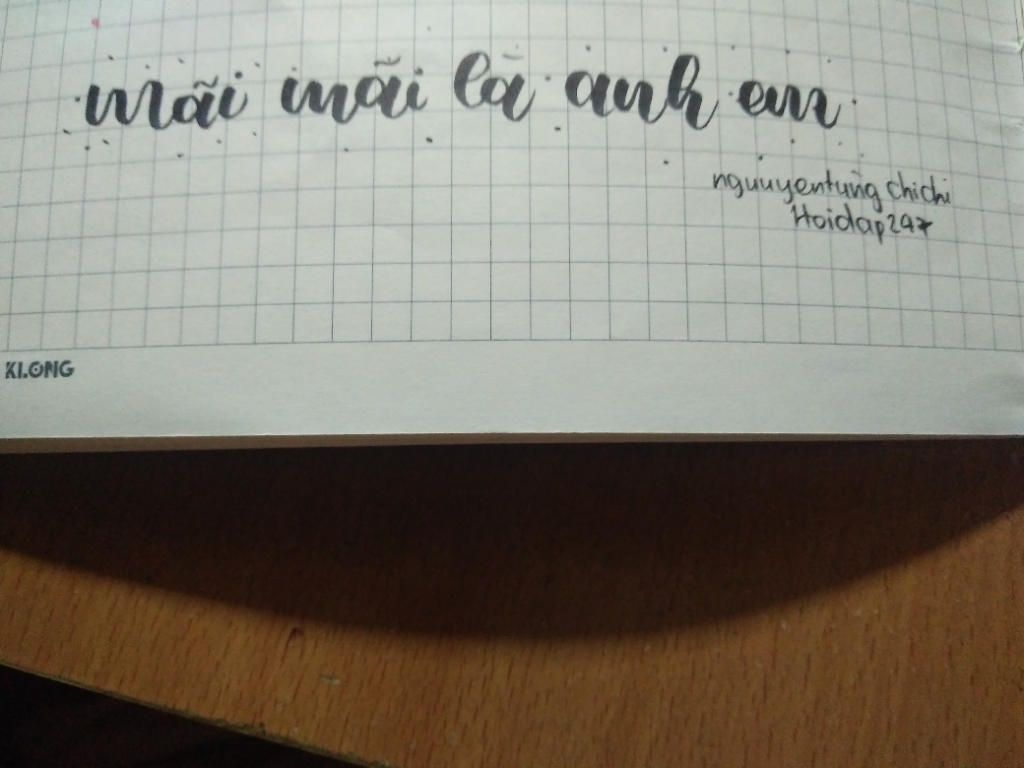 mãi mãi là anh em
nguuyentung chichi
Hoidap247
KLONG